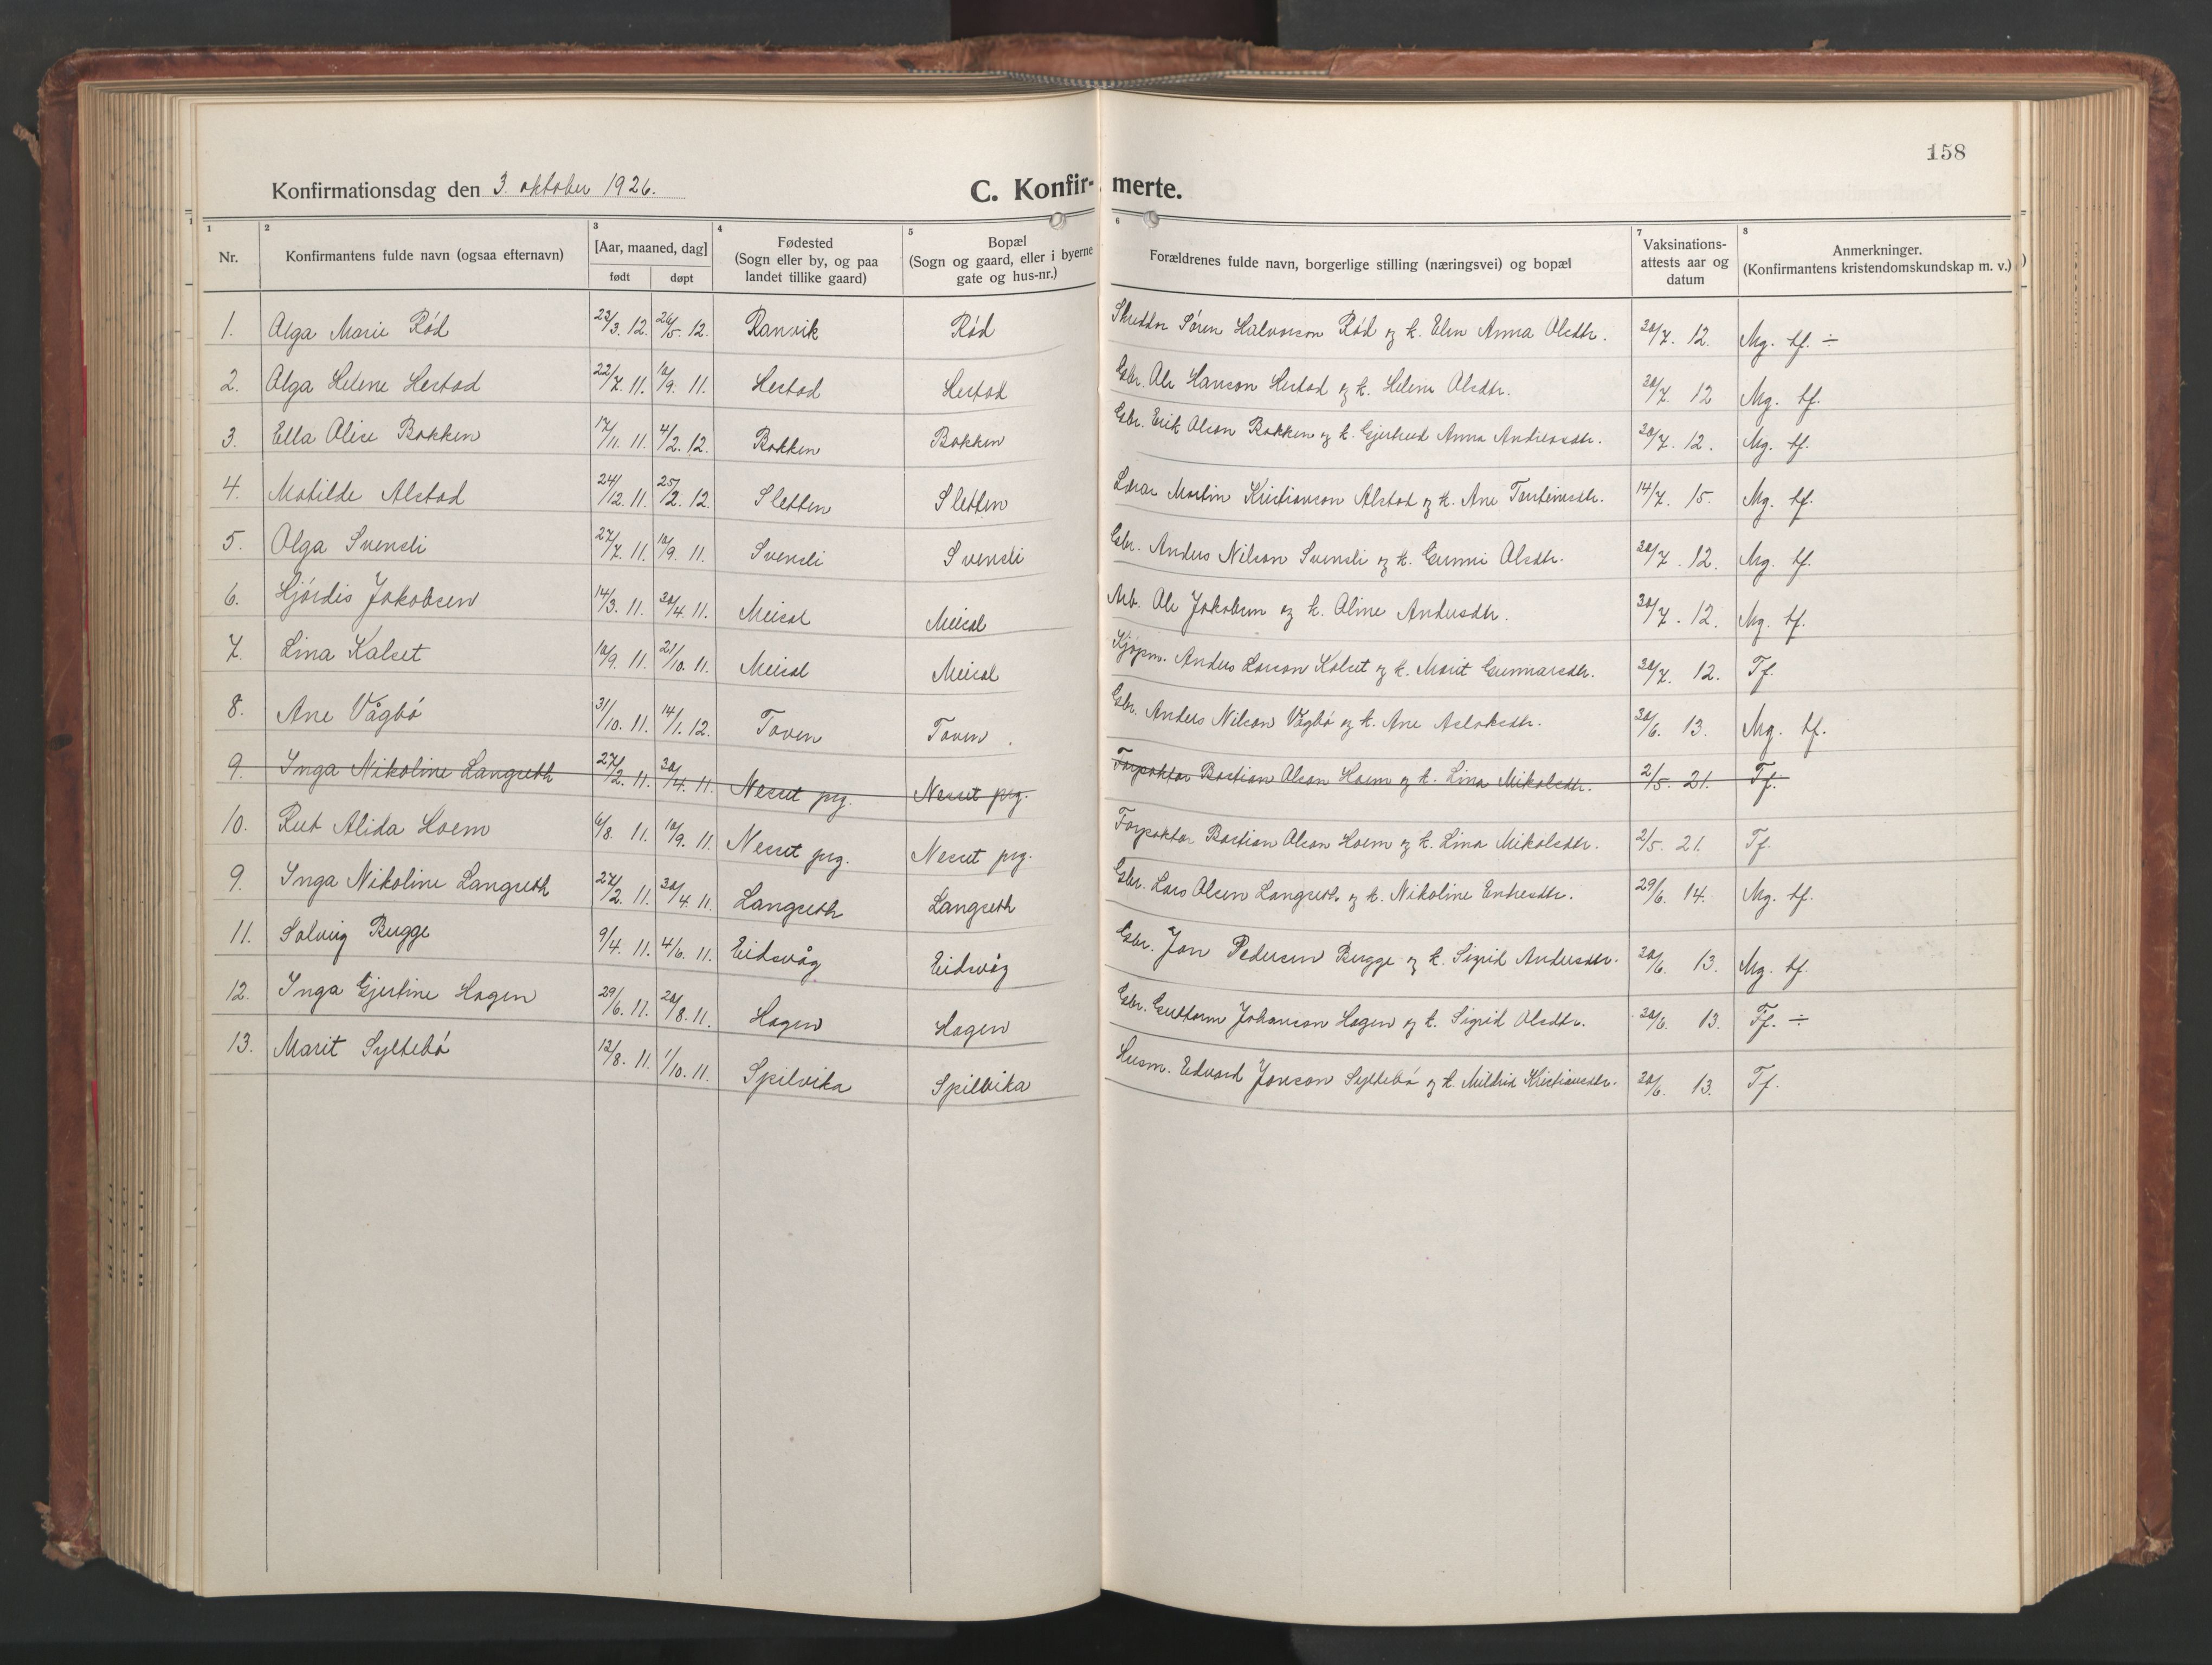 158
Konfirmationsdag den 3. oktober 1926.
C. Konfir- merte.
1 2 3 4 5 6 7 8
Nr. Konfirmantens fulde navn (ogsaa efternavn) [Aar, maaned, dag] født døpt Fødested (Sogn eller by, og paa landet tillike gaard) Bopæl (Sogn og gaard, eller i byerne gate og hus-nr.) Forældrenes fulde navn, borgerlige stilling (næringsvei) og bopæl Vaksinations-attests aar og datum Anmerkninger. (Konfirmantens kristendomskundskap m. v.)
1. Olga Marie Rød 23/3. 12. 26/5. 12. Ranvik Rød Skredder Søren Halvorson Rød og k. Elen Anna Olsdtr. 30/7. 12. Mg. tf. ÷
2. Olga Helene Hestad 22/7. 11. 10/9. 11. Hestad Hestad Gbr. Ole Hanson Hestad og k. Helene Olsdtr. 30/7. 12 Mg. tf.
3. Ella Alise Bakken 17/11. 11. 4/2. 12. Bakken Bakken Gbr. Erik Olson Bakken og k. Gjertrud Anna Andreasdtr. 30/7. 12. Mg. tf.
4. Matilde Alstad 24/12. 11. 25/2. 12. Sletten Sletten Lærar Martin Kristianson Alstad og k. Ane Torstinsdtr. 14/7. 15. Mg. tf.
5. Olga Svensli 27/7. 11. 10/9. 11. Svensli Svensli Gbr. Anders Nilson Svensli og k. Gunni Olsdtr. 30/7. 12. Mg. tf.
6. Hjørdis Jakobsen 14/3. 11. 30/4. 11. Meisal Meisal Arb. Ole Jakobsen og k. Oline Andersdtr. 30/7. 12. Mg. tf.
7. Lina Kalset 10/9. 11. 21/10. 11. Meisal Meisal Kjøpm. Anders Larson Kalset og k. Marit Gunnarsdtr. 30/7. 12. Tf.
8. Ane Vågbø 31/10. 11. 14/1. 12. Toven Toven. Gbr. Anders Nilson Vågbø og k. Ane Aslaksdtr. 30/6. 13. Mg. tf.
9. Inga Nikoline Langseth 27/2. 11. 30/4. 11. Nesset prg. Nesset prg. Forpaktar Bastian Olson Hoem og k. Lina Mikalsdtr. 2/5. 21. Tf.
10. Rut Alida Hoem 6/8. 11. 10/9. 11. Nesset prg. Nesset prg. Forpaktar Bastian Olson Hoem og k. Lina Mikalsdtr. 2/5. 21. Tf.
9. Inga Nikoline Langseth 27/2. 11. 30/4. 11. Langseth Langseth Gbr. Lars Olsen Langseth og k. Nikoline Endresdtr. 29/6. 14. Mg. tf.
11. Solveig Bugge 9/4. 11. 4/6. 11. Eidsvåg Eidsvåg Gbr. Jon Pedersen Bugge og k. Sigrid Andersdtr. 30/6. 13. Mg. tf.
12. Inga Gjertine Hagen 29/6. 11. 20/8. 11. Hagen Hagen Gbr. Guttorm Johanson Hagen og k. Sigrid Olsdtr. 30/6. 13. Tf. ÷
13. Marit Syltebø 12/8. 11. 1/10. 11. Spilvika Spilvika Husm. Edvard Jonson Syltebø og k. Mildrid Kristiansdtr. 30/6. 13. Tf.